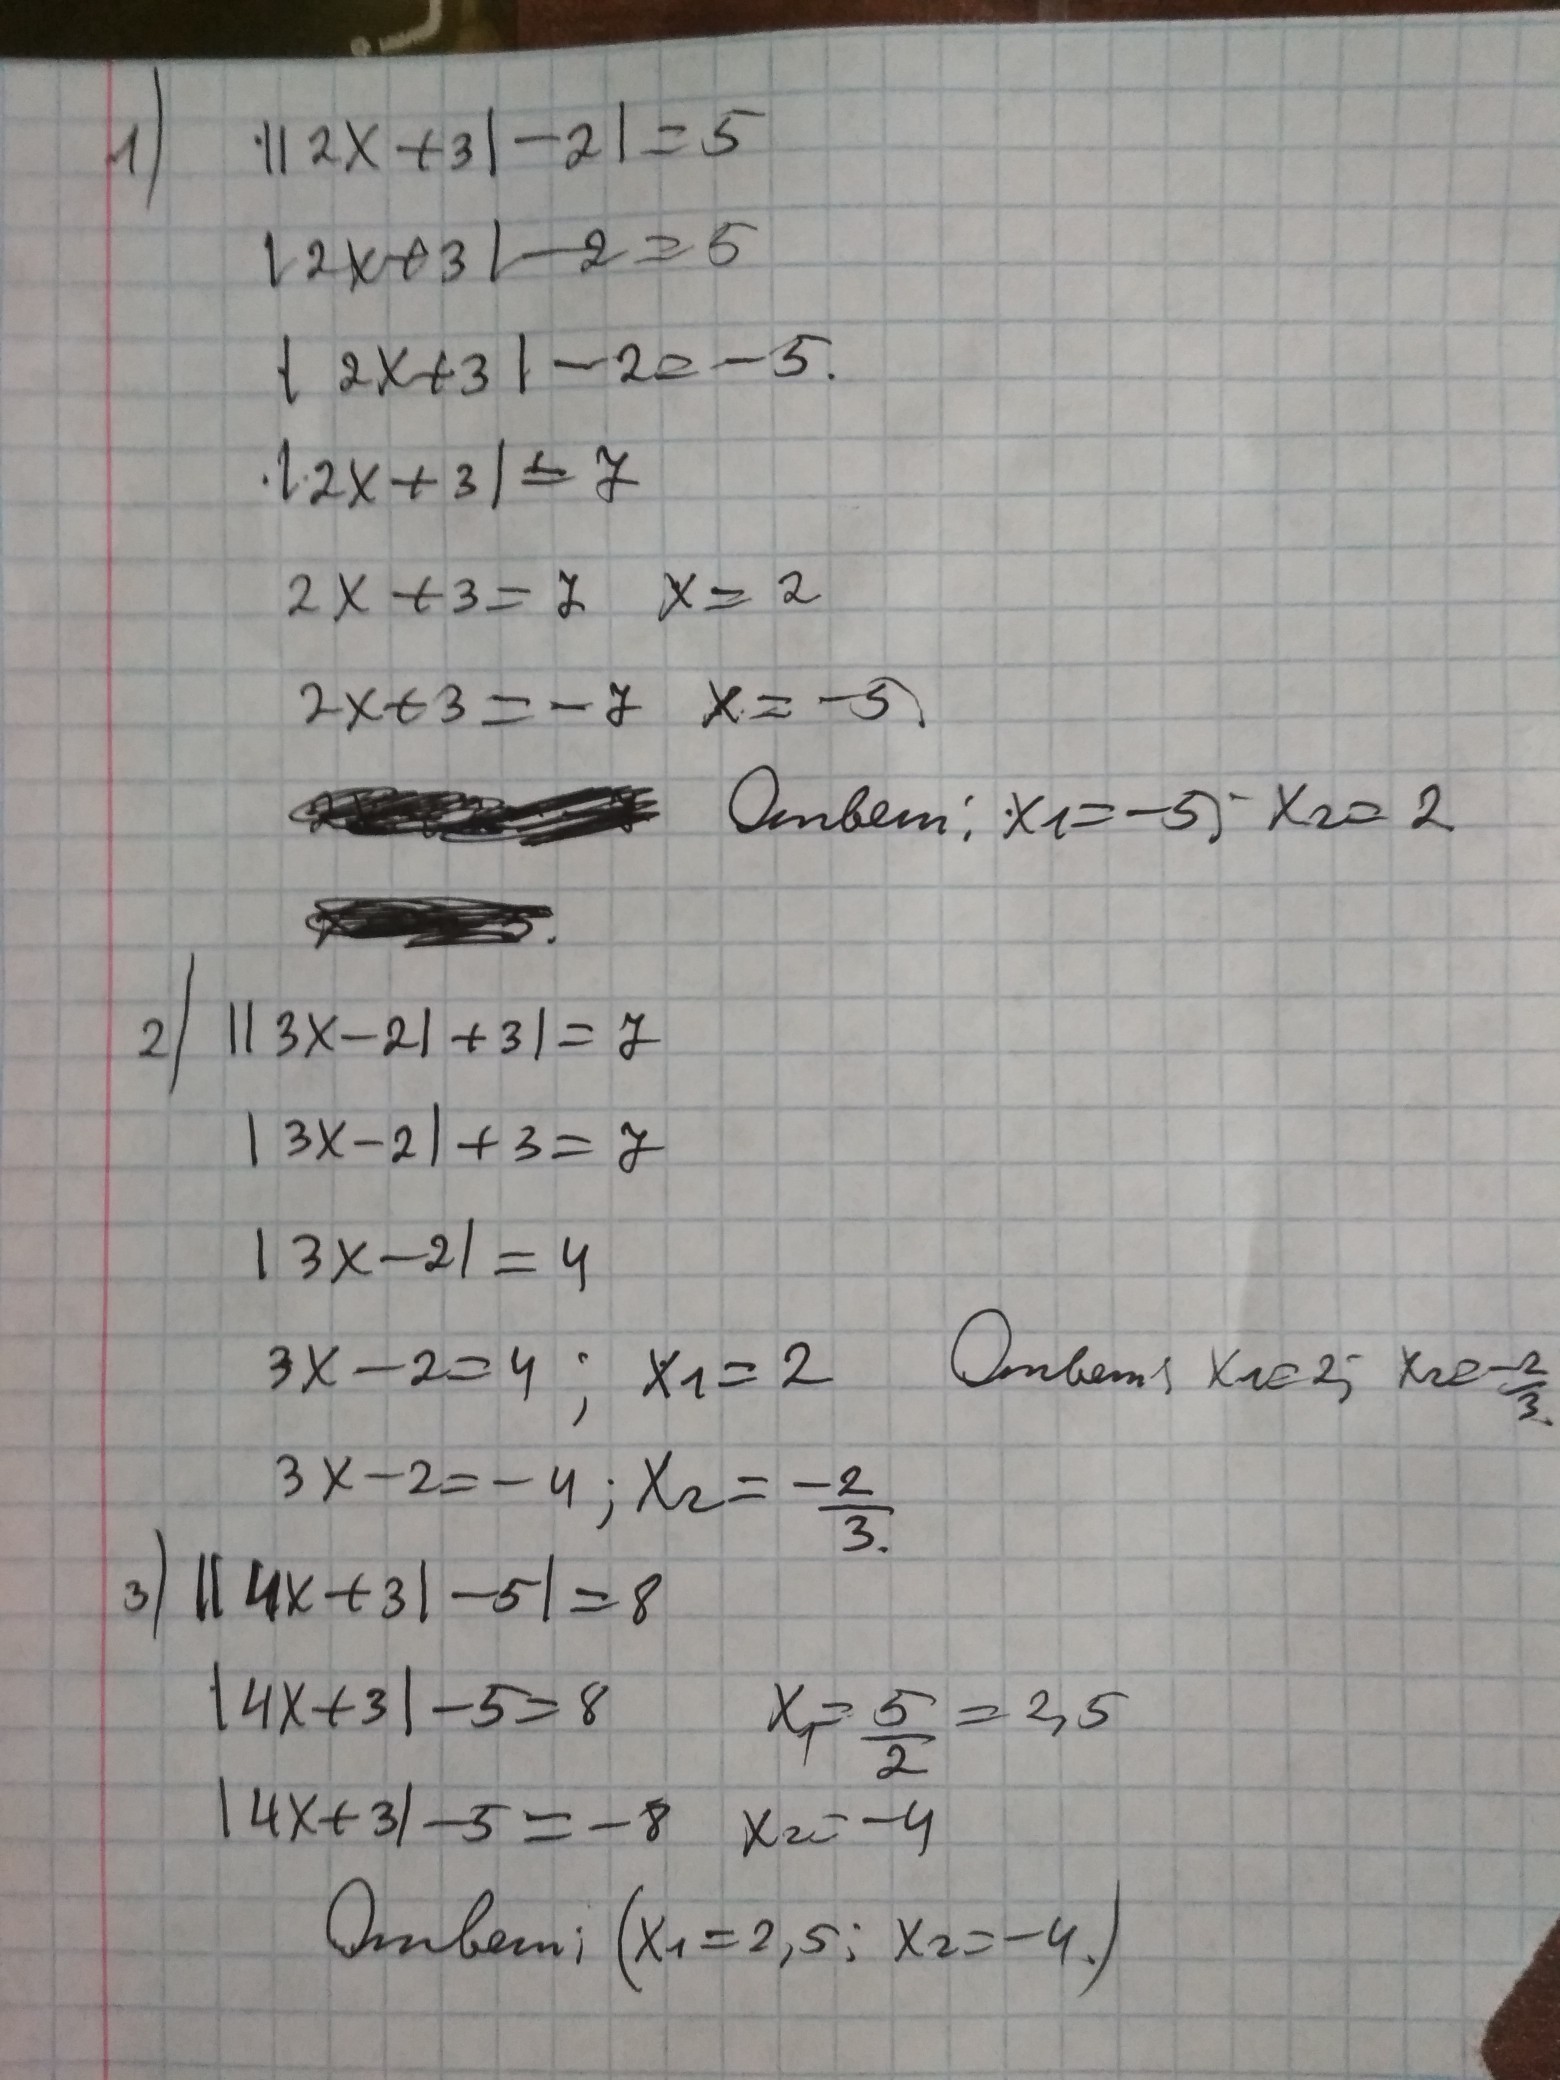 1) ||2x+3|-2|=5
|2x+3|-2=5
|2x+3|-2=-5.
|2x+3|=7
2x+3=7 x=2
2x+3=-7 x=-5
Ответ: x₁=-5; x₂=2
2) ||3x-2|+3|=7
|3x-2|+3=7
|3x-2|=4
3x-2=4; x₁=2 Ответ: x₁=2; x₂=-2/3.
3x-2=-4; x₂=-2/3.
3) ||4x+3|-5|=8
|4x+3|-5=8 x₁=5/2=2,5
|4x+3|-5=-8 x₂=-4
Ответ: (x₁=2,5; x₂=-4.)